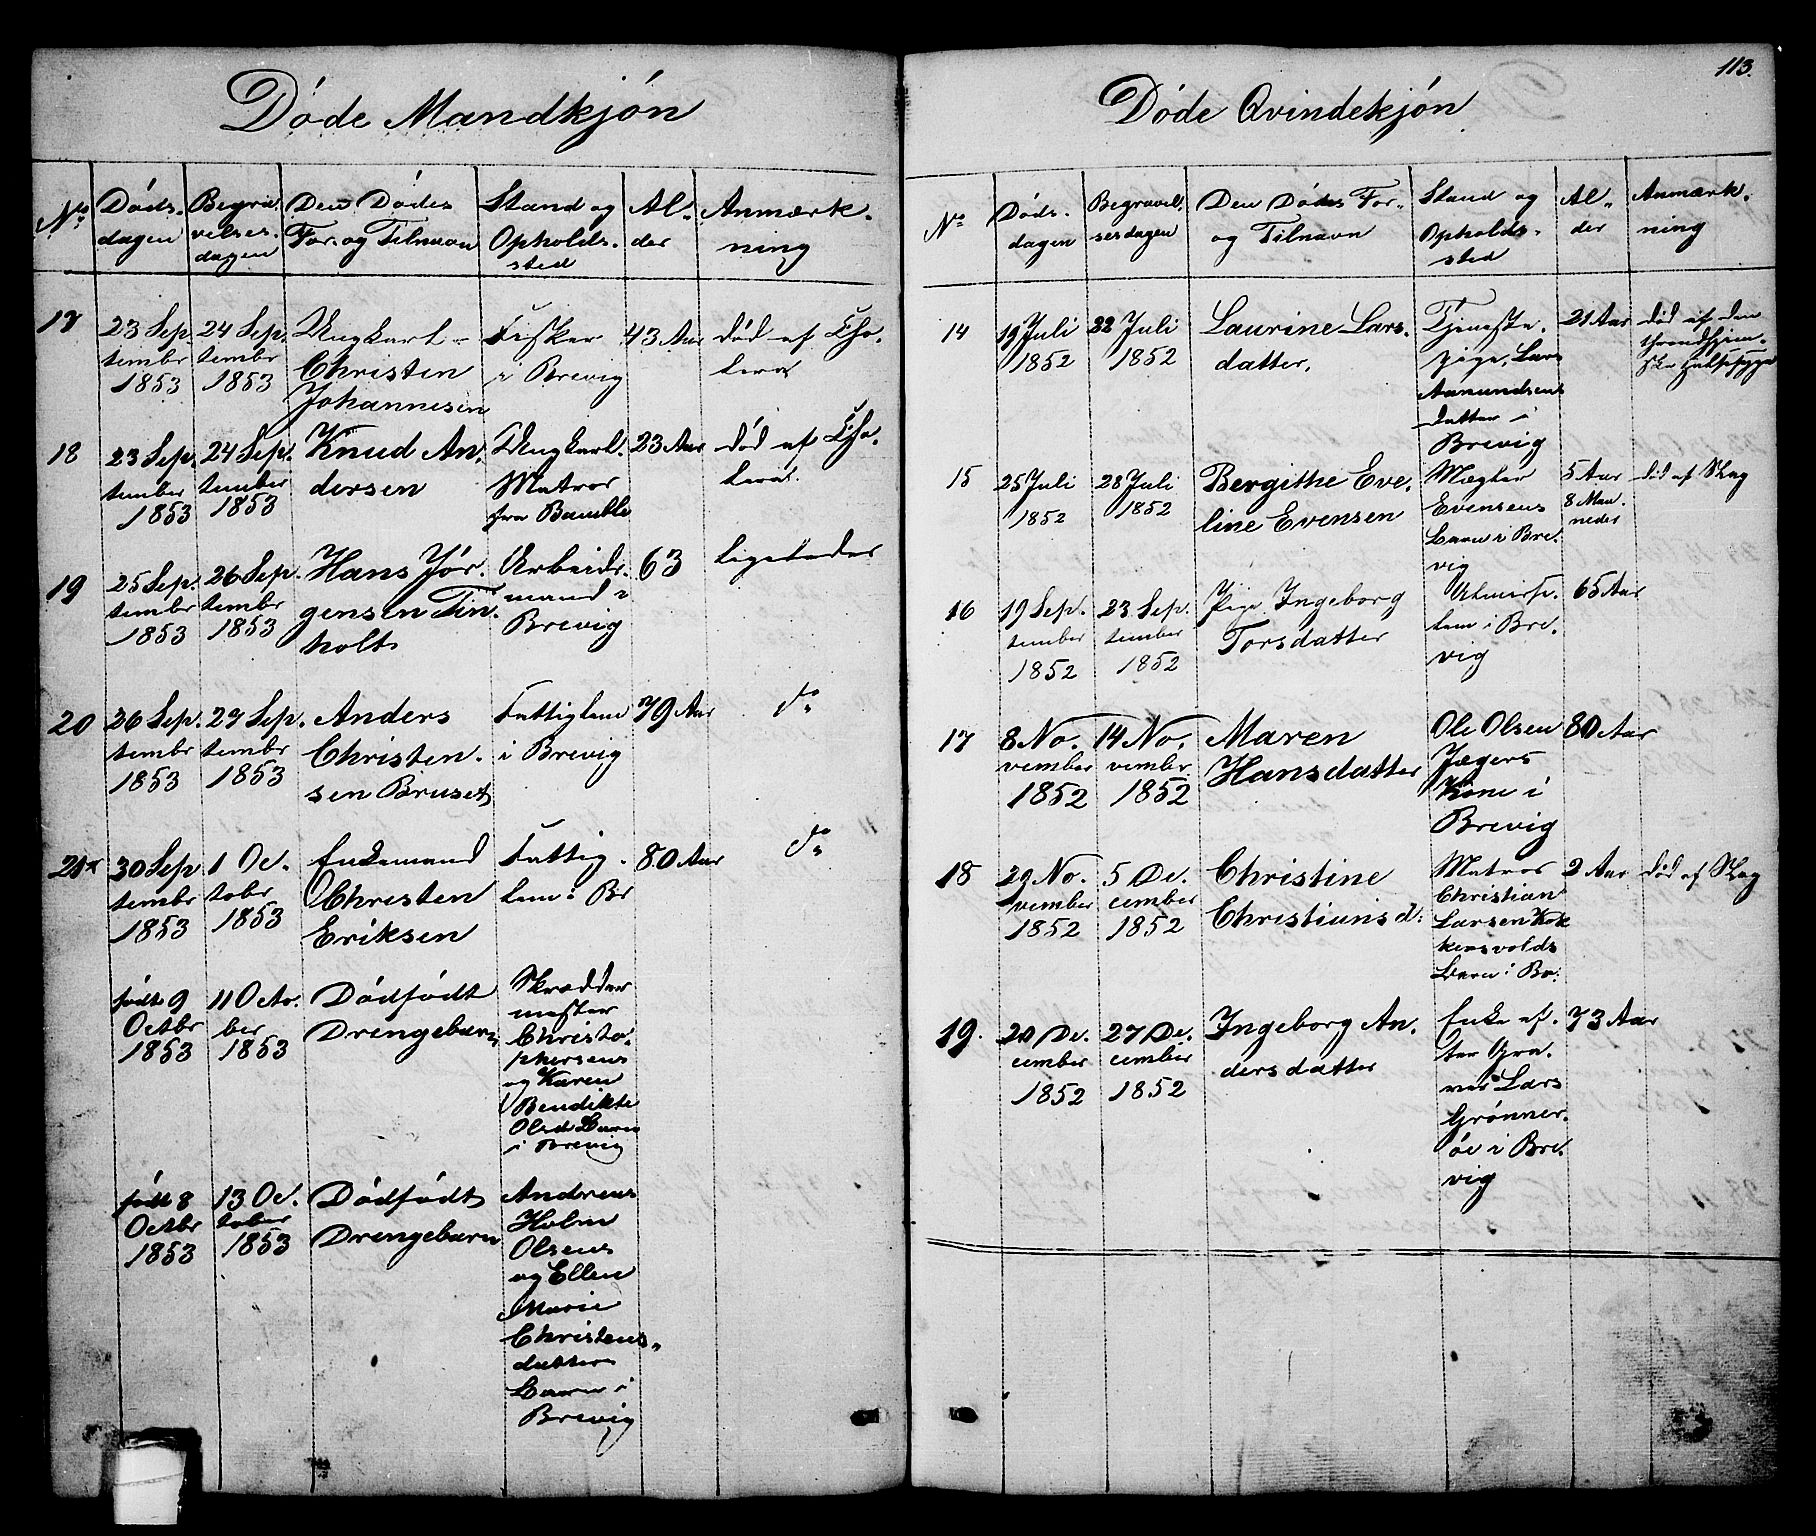 Døde Mandkjøn
No
Døds-
dagen
Begra-
velses-
dagen
Den Dødes
For- og Tilnavn
Stand og
Opholds-
sted
Al-
der
Anmærk-
ning
17
23 Sep
tembr
1853
24 Sep.
tembr
1853
Ungkarl
Christen
Johannesen
Fisker
i Brevig
43 Aar
død af Cho-
lera
18
23 Sep.
tember
1853
24 Sep.
tember
1853
Knud An-
dersen
Ungkarl.
Matros
fra Bamble
23 Aar
død af Cho-
lera
19
25 Sep.
tembr
1853
26 Sep.
tembr
1853
Hans Jør-
gensen Tin-
holt
Arbeids-
mand i
Brevig
63
ligeledes
20
26 Sep.
tembr
1853
29 Sep.
tembr
1853
Anders
Christen-
sen Bruset
Fattiglem
i Brevig
79 Aar
do
21
30 Sep
tembr
1853
1 Oc-
tobr
1853
Enkemand
Christen
Eriksen
Fattig-
lem i Br
80 Aar
do
født 9
Octbr
1853
11 Octo-
ber
1853
Dødfødt
Drengebarn
Skrædder
mester
Christo-
phersens
og Karen
Bendikte
Olsd Barn
i Brevig
født 8
Octbr
1853
13 Oc-
tober
1853
Dødfødt
Drengebarn
Andreas
Holm
Olsens
og Ellen
Marie
Christens-
datters
Barn i
Brevig
113.
Døde Qvindekjøn
No
Døds-
dagen
Begravel-
sesdagen
Den Dødes For-
og Tilnavn
Stand og
Opholds-
sted
Al-
der
Anmærk-
ning
14
19 Juli
1852
22 Juli
1852
Laurine Lars-
datter.
Tjeneste-
pige, Lars
Aamundsens
Datter i
Brevig
21 Aar
død af den
throndhjem-
ske Halssyge
15
25 Juli
1852
28 Juli
1852
Bergithe Eve-
line Evensen
Mægler
Evensens
Barn i Bre-
vig
5 Aar
8 Maa-
neder
død af Slag
16
19 Sep.
tember
1852
23 Sep.
tember
1852
Pige Ingeborg
Torsdatter
Almisse-
lem i Bre-
vig
65 Aar
17
8 No-
vember
1852
14 No-
vembr
1852
Maren
Hansdatter
Ole Olsen
Jægers
Kone i
Brevig
80 Aar
18
29 No-
vember
1852
5 De-
cember
1852
Christine
Christiansd:
Matros
Christian
Larsen Kok
kersvolds
Barn i Br.
2 Aar
død af Slag
19.
20 De-
cember
1852
27 De-
cember
1852
Ingeborg An-
dersdatter
Enke ef-
ter Gra-
ver Lars
Grønner-
øe i Bre-
vig
73 Aar